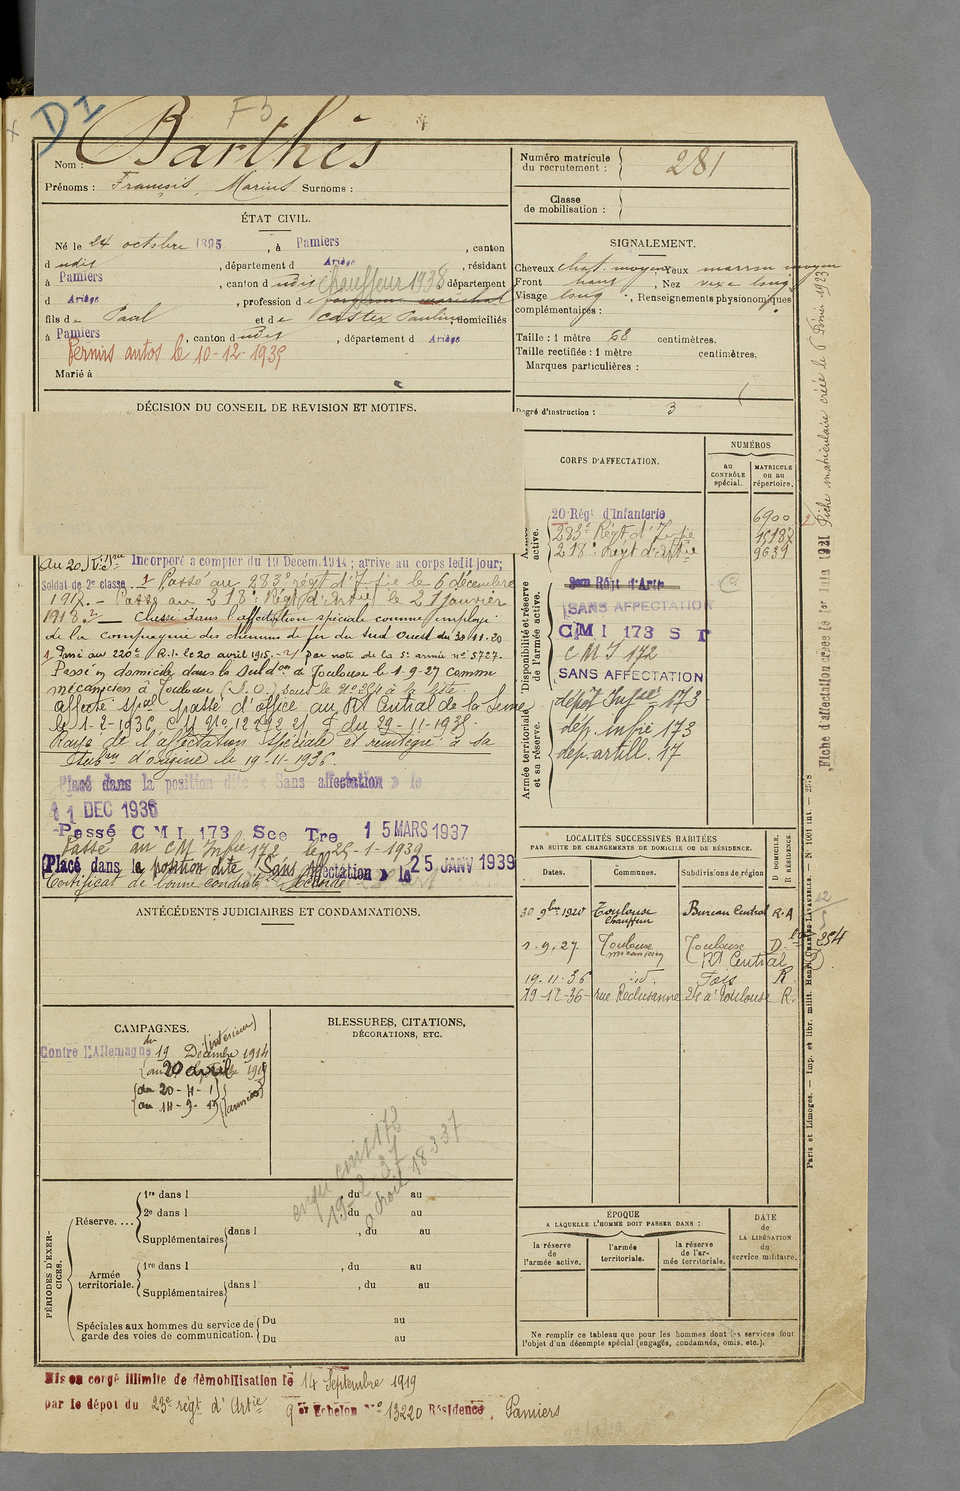 D I
F5
Nom : Barthès
Prénoms : François, Marius Surnoms :
Numéro matricule du recrutement : 281
Classe de mobilisation :
ÉTAT CIVIL.
Né le 24 octobre 1895, à Pamiers, canton
d udit, département d Ariège, résidant
à Pamiers, canton d udit chauffeur 1938 département
d Ariège, profession de forgeron maréchal
fils de Paul et de Castex Pauline, domiciliés
à Pamiers, canton d udit, département d Ariège
Permis autos le 10-12-1935
Marié à
SIGNALEMENT.
Cheveux chat. moyen Yeux marron moyen
Front haut, Nez vexe long
Visage long, Renseignements physionomiques
complémentaires :
Taille : 1 mètre 68 centimètres.
Taille rectifiée : 1 mètre centimètres.
Marques particulières :
Degré d'instruction : 3
DÉCISION DU CONSEIL DE REVISION ET MOTIFS.
au 20 Incorporé à compter du 19 Décem. 1914 ; arrivé au corps ledit jour;
Soldat de 2e classe. Passé au 283e régt d'Infie le 6 décembre
1917. - Passé au 218e Régt d'Artie le 21 janvier
1918. - Classé dans l'affectation spéciale comme employé
de la compagnie des chemins de fer du Sud Ouest du 30.11.20
Passé au 220e R.I. le 20 avril 1915. - par note de la 5e armée n° 5727.
Passé en domicile dans la Subdon de Toulouse le 1-9-27 comme
mécanicien à Toulouse (S.O.) sous le n° 254 à la liste
affecté spal passé d'office au Rt Central de la Seine
le 1-2-1936, C.M. N° 12792 du 29-11-1935.
Rayé de l'affectation spéciale et réintégré à sa
Subon d'origine le 19-11-1936.
Placé dans la position dite « Sans affectation » le
1 DEC 1936
Passé C M I 173 Sce Tre 15 MARS 1937
Passé au CM Infie 172 le 25-1-1939
Placé dans la position dite « Sans affectation » le 25 JANV 1939
Certificat de bonne conduite accordé
CORPS D'AFFECTATION.
NUMÉROS
au CONTRÔLE spécial.
MATRICULE ou au répertoire.
Armée active.
20 Régt d'Infanterie 6900
283e Régt d'Infie 15187
218e Régt d'Artie 9639
Disponibilité et réserve de l'armée active.
Régt d'Artie
SANS AFFECTATION
C M I 173 S T
C M I 172
SANS AFFECTATION
Armée territoriale et sa réserve.
dépôt Infie 173
dép. infie 173
dép. artill. 17
Fiche d'affectation créée le 1er Juin 1921
Fiche matriculaire créée le 6 Février 1923
LOCALITÉS SUCCESSIVES HABITÉES
PAR SUITE DE CHANGEMENTS DE DOMICILE OU DE RÉSIDENCE.
D DOMICILE, R RÉSIDENCE.
Dates. Communes. Subdivisions de région
30 9bre 1920 Toulouse Chauffeur Bureau Central R.A
1.9.27. Toulouse mécanicien Toulouse Rt Central D. 254
19.11.36 id. Foix R
19-12-36 rue Reclusanne 24 à Toulouse R.
ANTÉCÉDENTS JUDICIAIRES ET CONDAMNATIONS.
CAMPAGNES.
Contre l'Allemagne du 19 Décembre 1914 (intérieur)
au 20 avril
du 20-4-15
au 14-9-19 (armées)
BLESSURES, CITATIONS,
DÉCORATIONS, ETC.
19-2-37
PÉRIODES D'EXERCICES.
Réserve....
1re dans l , du au
2e dans l , du au
Supplémentaires dans l , du au
Armée territoriale.
1re dans l , du au
Supplémentaires dans l , du au
Spéciales aux hommes du service de garde des voies de communication.
Du au
Du au
ÉPOQUE
A LAQUELLE L'HOMME DOIT PASSER DANS :
la réserve de l'armée active,
l'armée territoriale.
la réserve de l'armée territoriale.
DATE de LA LIBÉRATION du service militaire.
Ne remplir ce tableau que pour les hommes dont les services font
l'objet d'un décompte spécial (engagés, condamnés, omis, etc.).
Paris et Limoges. — Imp. et libr. milit. Henri CHARLES-LAVAUZELLE.
Mis en congé illimité de démobilisation le 14 Septembre 1919
par le dépôt du 23e régt d'Artie 9 er Echelon N° 13220 Résidence, Pamiers